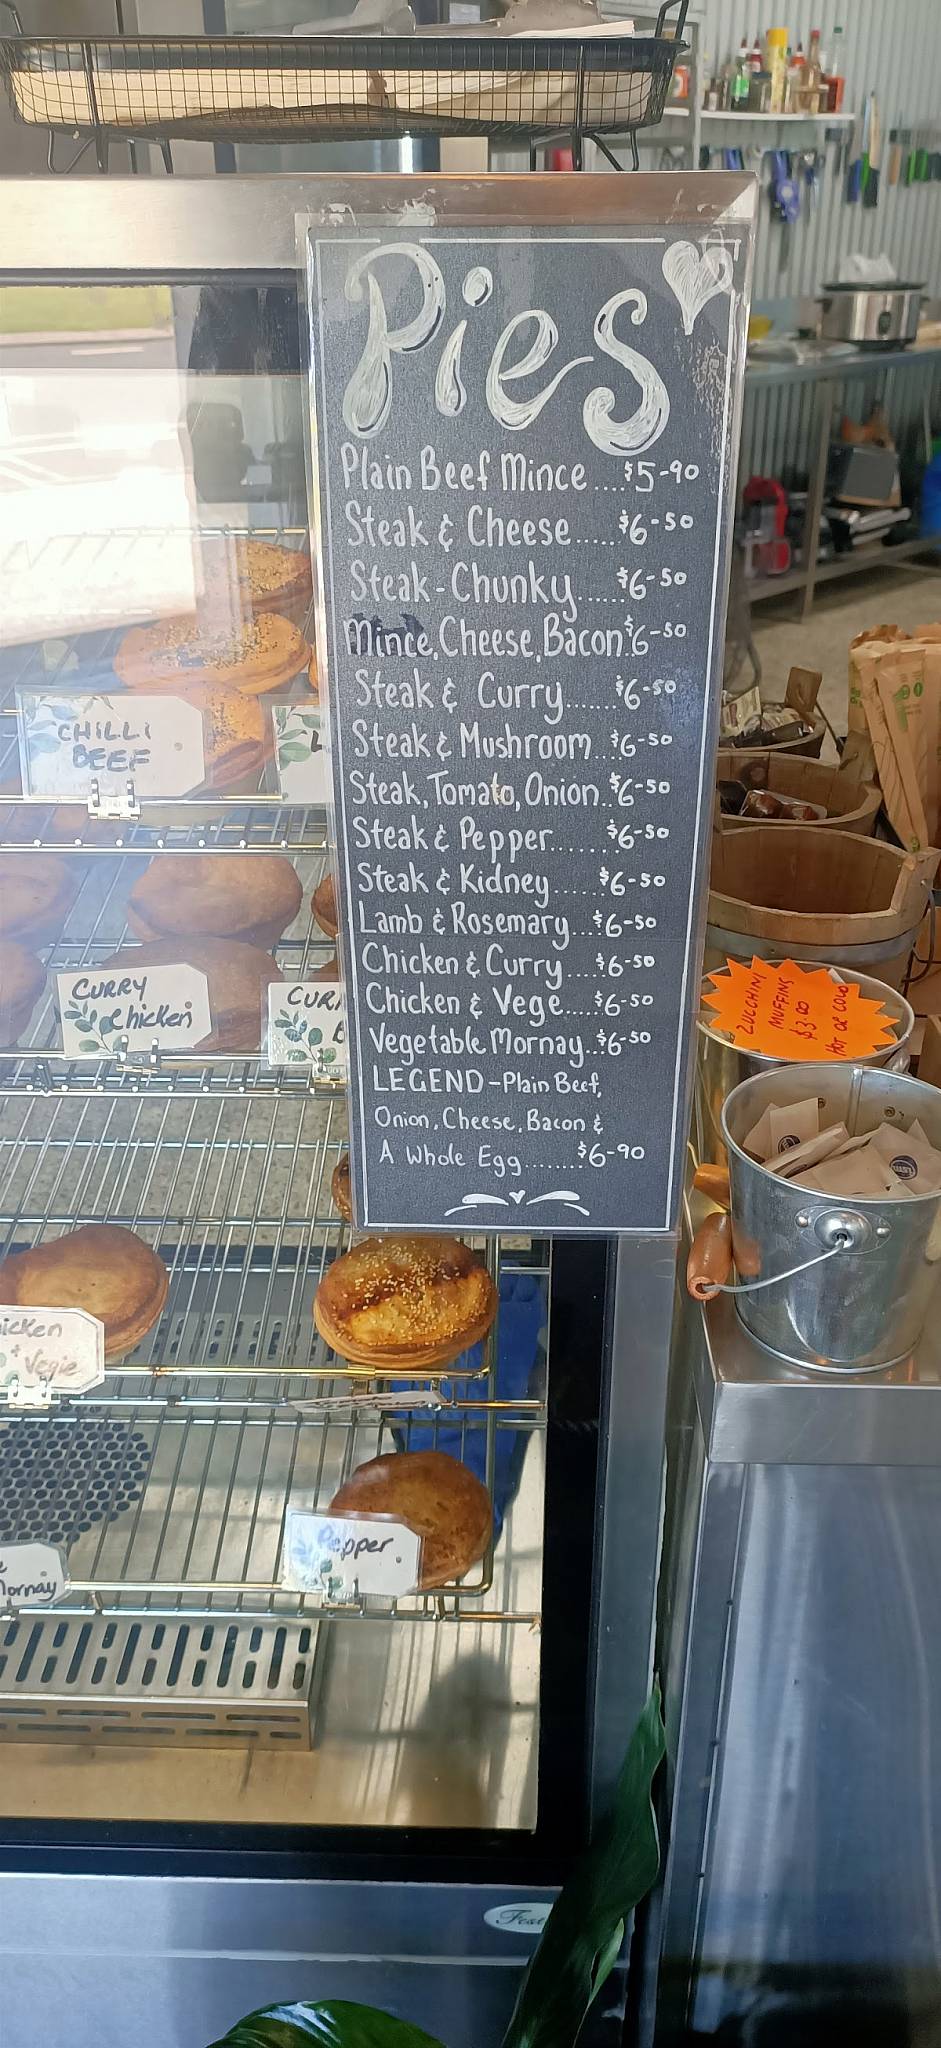 Pies
Plain Beef Mince....$5-90
Steak & Cheese......$6-50
Steak-Chunky......$6-50
Mince, Cheese, Bacon.$6-50
Steak & Curry.......$6-50
Steak & Mushroom..$6-50
Steak, Tomato, Onion..$6-50
Steak & Pepper.......$6-50
Steak & Kidney.....$6-50
Lamb & Rosemary...$6-50
Chicken & Curry....$6-50
Chicken & Vege.....$6-50
Vegetable Mornay..$6-50
LEGEND - Plain Beef,
Onion, Cheese, Bacon &
A Whole Egg........$6-90
CHILLI
BEEF
CURRY
Chicken
Vegie
Mornay
Pepper
ZUCCHINI
MUFFINS
$3.00
HOT OR COLD